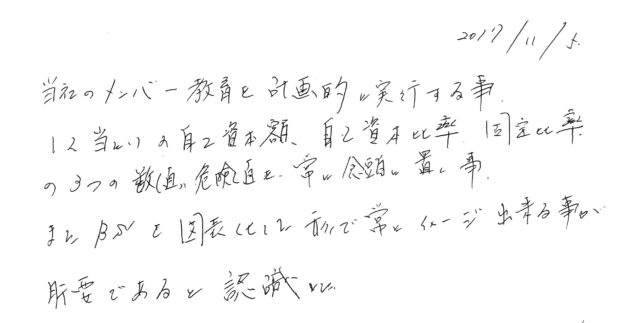 2017/11/5.
当社のメンバー教育を計画的に実行する事.
1人当りの自己資本額、自己資本比率 固定比率
の3つの数値、危険値を、常に念頭に置く事.
また BS を図表化した形で常にイメージ出来る事が
肝要であると認識した.